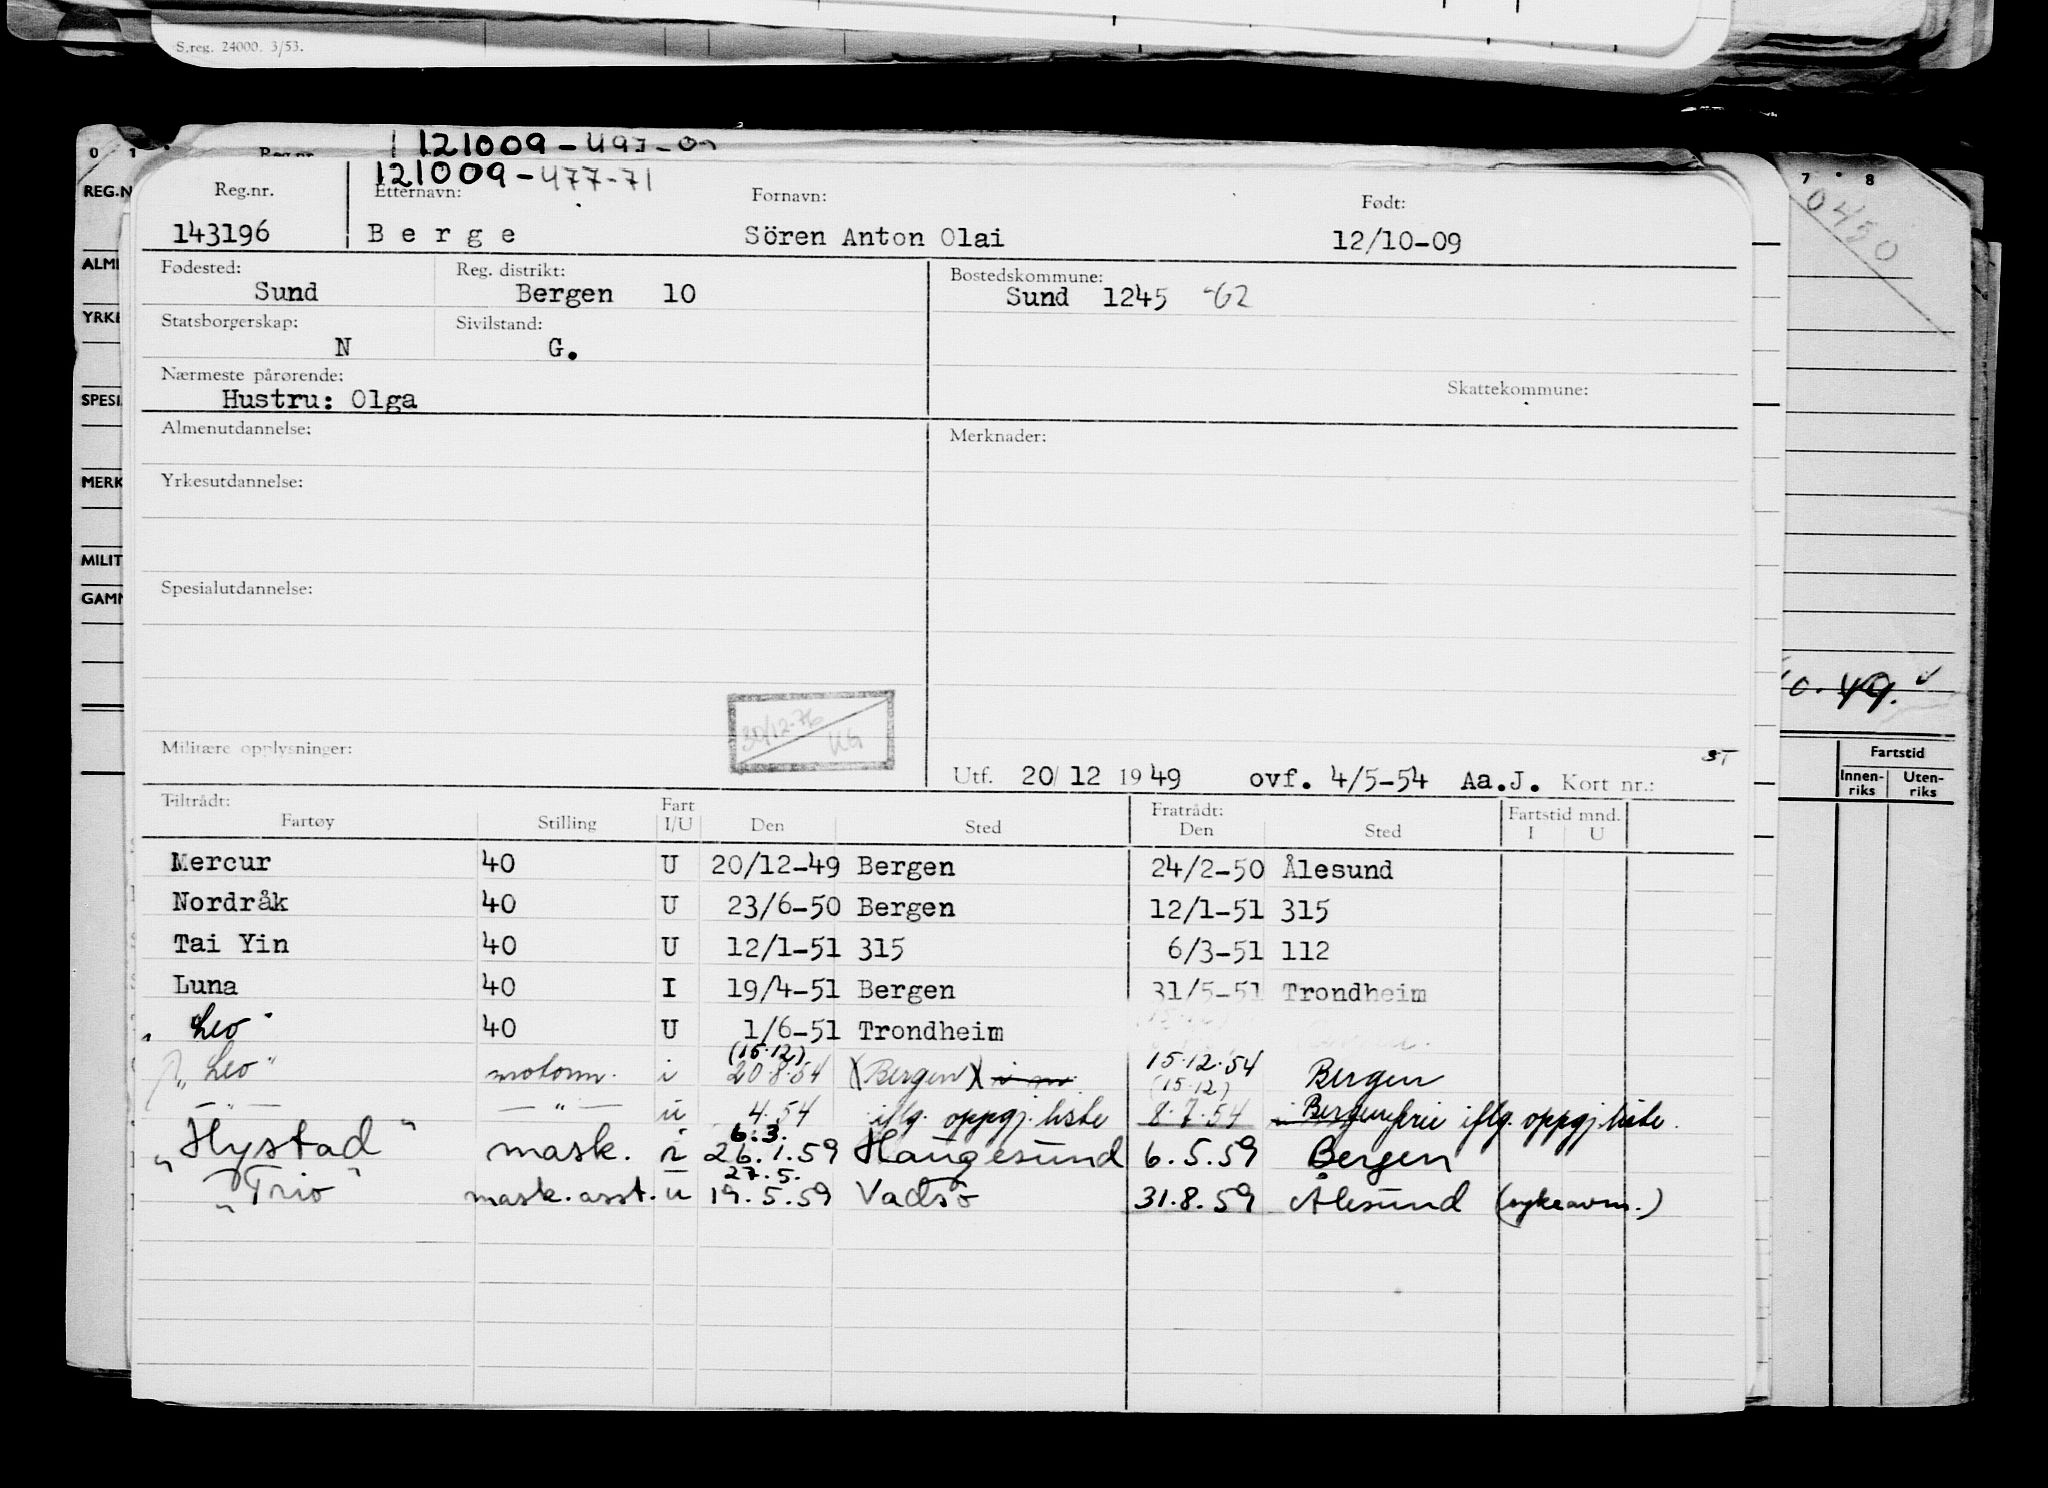 S.reg. 24000. 3/53.
0 1 Reg.nr. 121009-497-0
121009-477-71
REG.N Reg.nr. Etternavn: Fornavn: Født: 7 8
143196 Berge Sören Anton Olai 12/10-09 04/50
ALME Fødested: Reg. distrikt: Bostedskommune:
Sund Bergen 10 Sund 1245 -62
YRKE Statsborgerskap: Sivilstand:
N G.
Nærmeste pårørende: Skattekommune:
SPESI Hustru: Olga
Almenutdannelse: Merknader:
MERK Yrkesutdannelse:
MILIT
GAMM Spesialutdannelse:
30/12-76
UG
10.49.
Militære opplysninger: ST
Utf. 20/12 1949 ovf. 4/5-54 Aa.J. Kort nr.:
Fartstid
Innen-riks Uten-riks
Tiltrådt: Fart Fratrådt: Fartstid mnd.
Fartøy Stilling I/U Den Sted Den Sted I U
Mercur 40 U 20/12-49 Bergen 24/2-50 Ålesund
Nordråk 40 U 23/6-50 Bergen 12/1-51 315
Tai Yin 40 U 12/1-51 315 6/3-51 112
Luna 40 I 19/4-51 Bergen 31/5-51 Trondheim
"Leo" 40 U 1/6-51 Trondheim
(15.12) 15.12.54
"Leo" motorm. i 20.8.54 (Bergen) i m Bergen
(15.12)
— " — — " — u 4.54 iflg. oppgj. liste 8.7.54 iflg. oppgj. liste.
6.3.
"Hystad" mask. i 26.1.59 Haugesund 6.5.59 Bergen
27.5.
"Trio" mask. asst. u 19.5.59 Vadsö 31.8.59 Ålesund (sykeavm.)